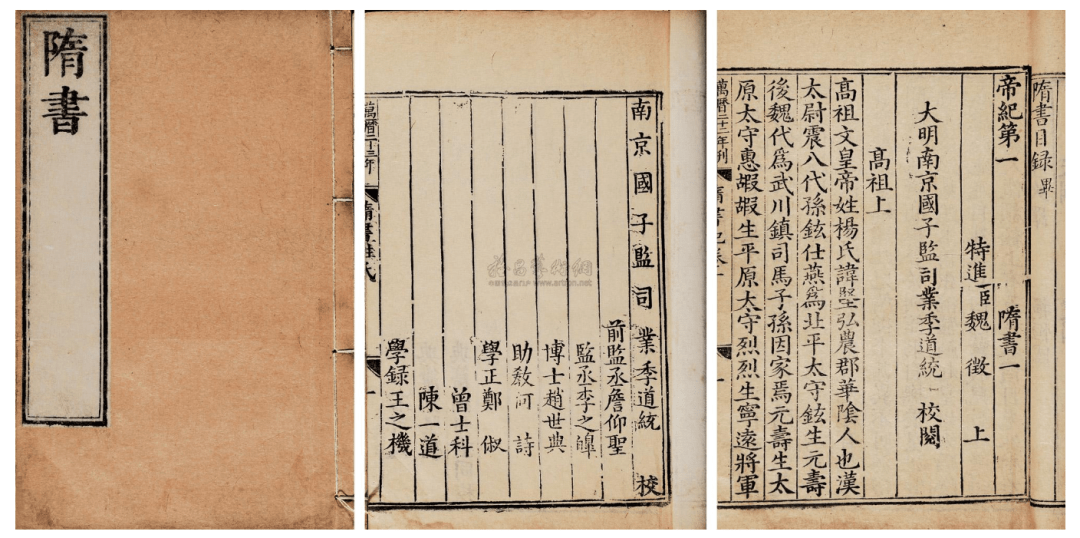 隋書
南京國子監司業季道統 校
前監丞詹仰聖
監丞李之皥
博士趙世典
助教何 詩
學正鄭 俶
曾士科
陳一道
學錄王之機
萬曆二十三年
隋書姓氏
一
隋書目録畢
帝紀第一 隋書一
特進臣魏 徵 上
大明南京國子監司業季道統 校閱
髙祖上
髙祖文皇帝姓楊氏諱堅弘農郡華陰人也漢
太尉震八代孫鉉仕燕爲北平太守鉉生元壽
後魏代爲武川鎮司馬子孫因家焉元壽生太
原太守惠嘏嘏生平原太守烈烈生寧遠將軍
萬曆二十二年刊
隋書紀卷一
一